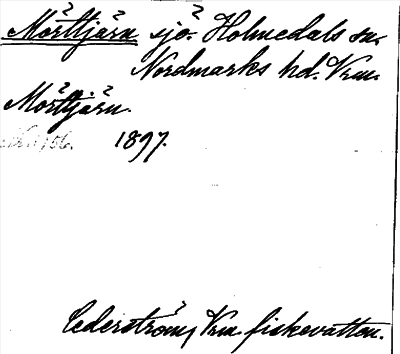 Mörttjärn sjö. Holmedals sn.
Nordmarks hd. Vrm.
Mörttjärn.
1897.
Cederström, Vrm. fiskevatten.